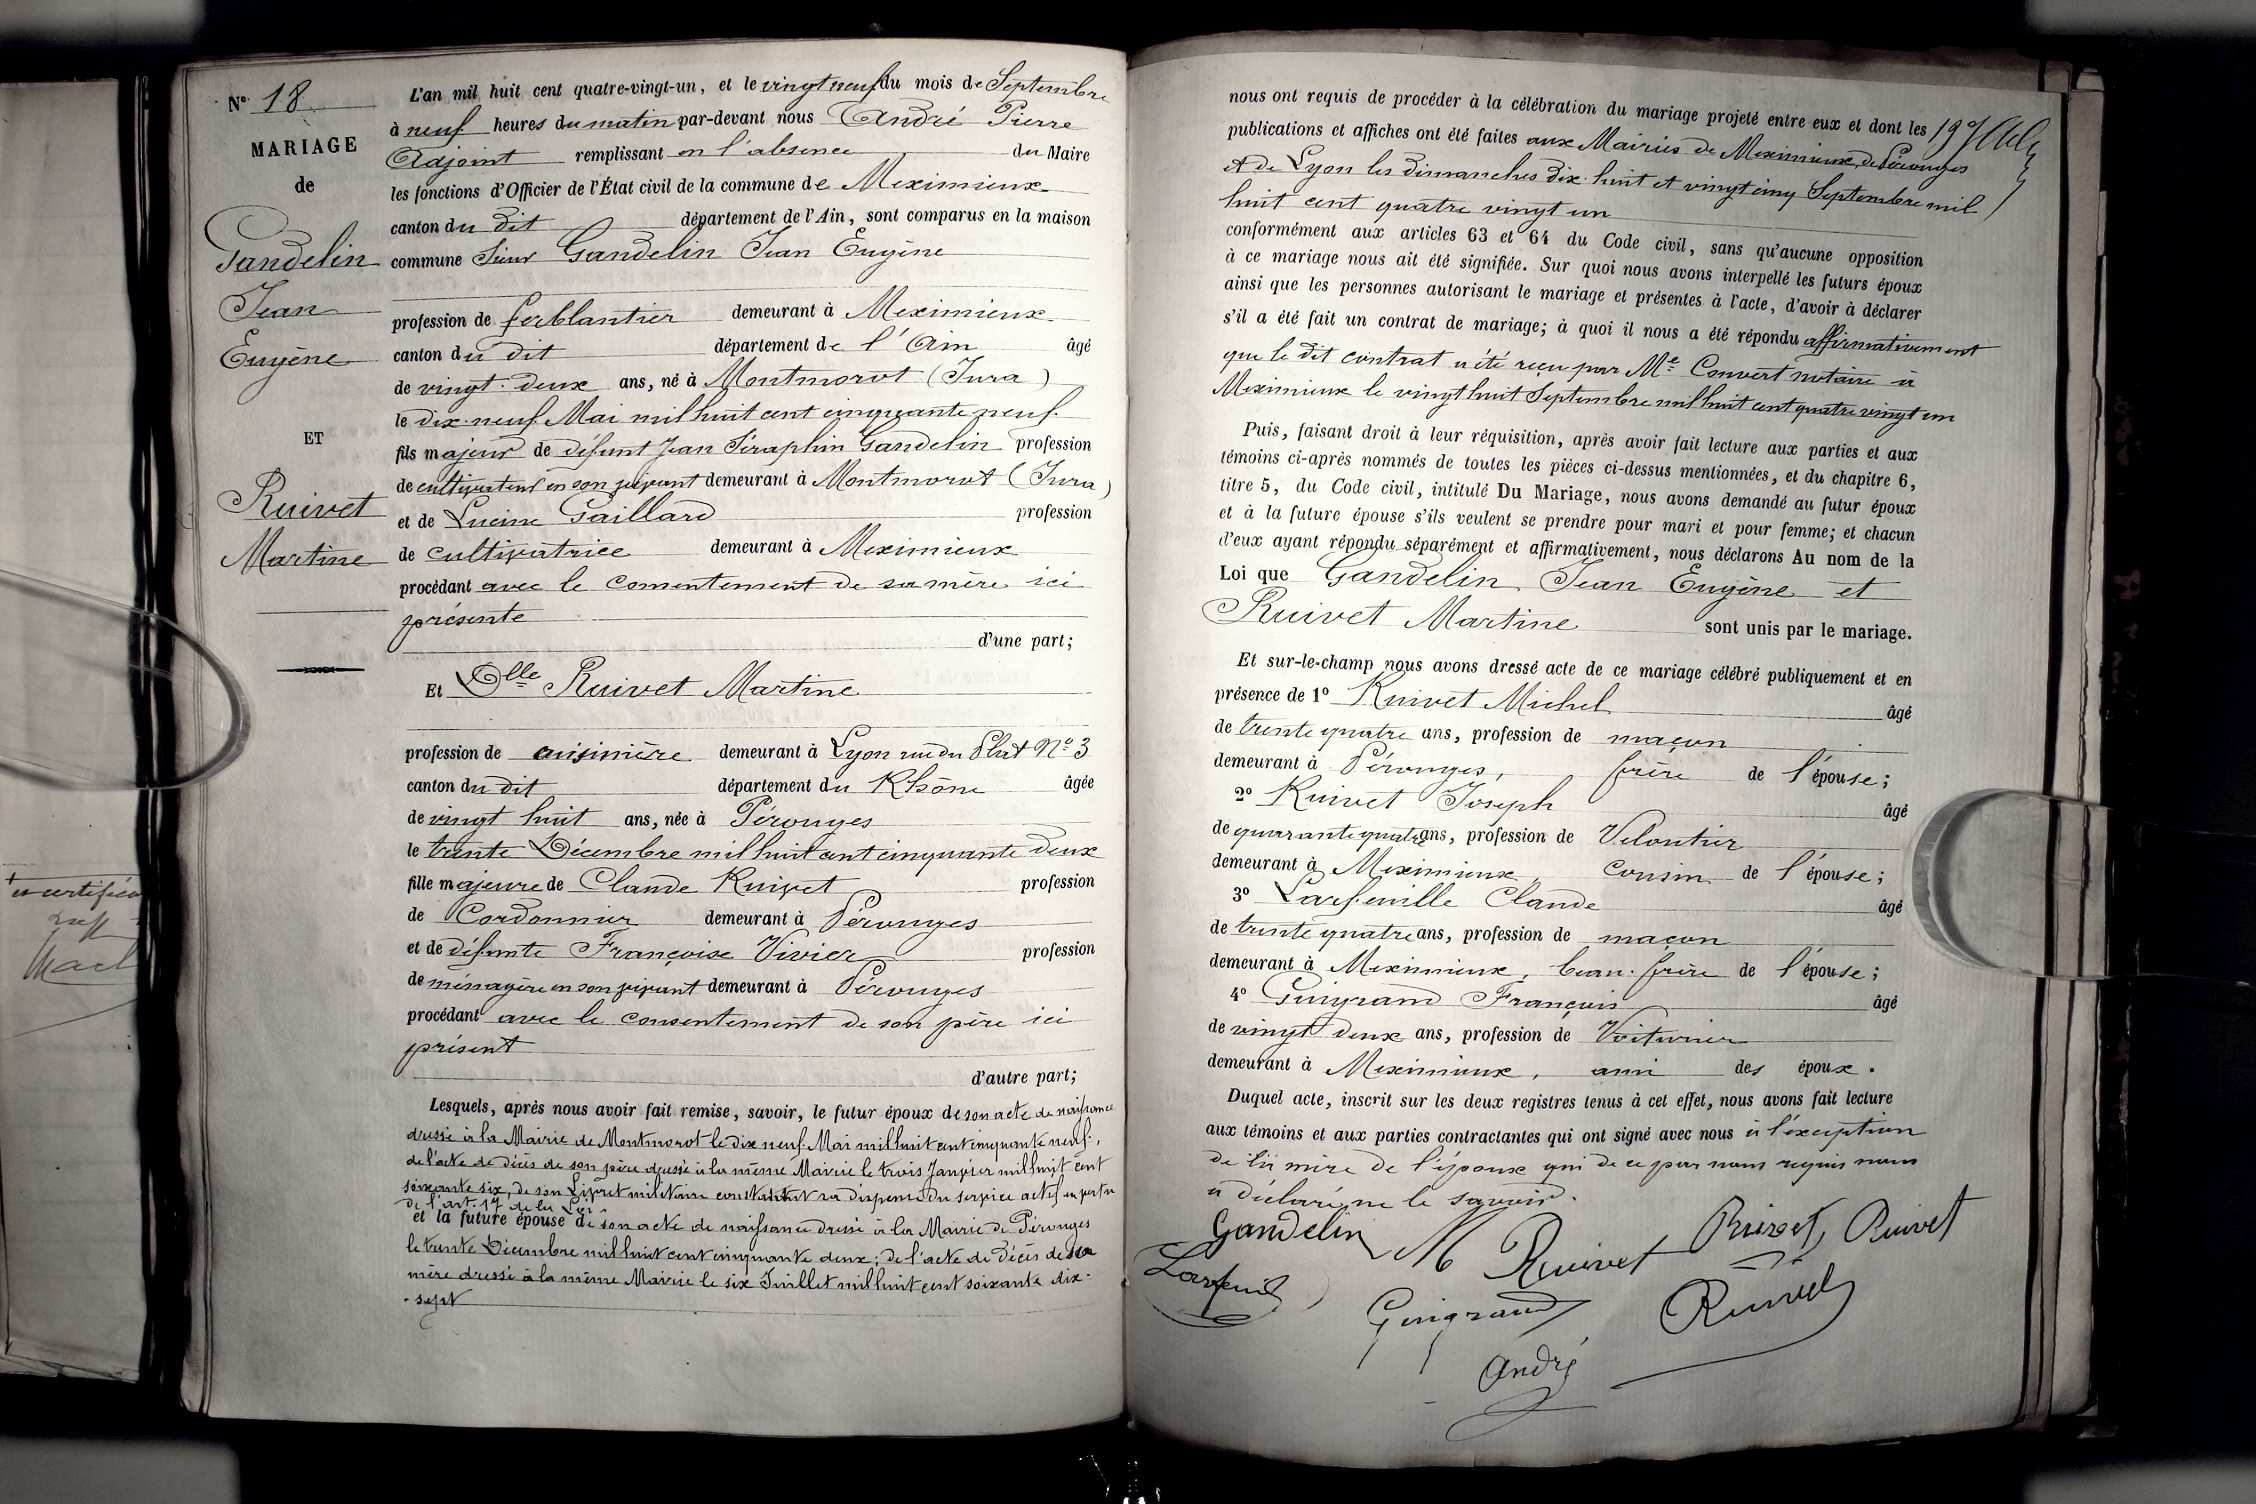 N° 18
MARIAGE
de
Gandelin
Jean
Eugène
ET
Ruivet
Martine
L'an mil huit cent quatre-vingt-un, et le vingt neuf du mois de Septembre
à neuf heures du matin par-devant nous André Pierre
Adjoint remplissant en l'absence du Maire
les fonctions d'Officier de l'État civil de la commune de Meximieux
canton du dit département de l'Ain, sont comparus en la maison
commune Sieur Gandelin Jean Eugène
profession de ferblantier demeurant à Meximieux
canton du dit département de l'Ain âgé
de vingt-deux ans, né à Montmorot (Jura)
le dix-neuf Mai mil huit cent cinquante neuf
fils majeur de défunt Jean Séraphin Gandelin profession
de cultivateur en son vivant demeurant à Montmorot (Jura)
et de Lucine Gaillard profession
de cultivatrice demeurant à Meximieux
procédant avec le consentement de sa mère ici
présente
d'une part;
Et Dlle Ruivet Martine
profession de cuisinière demeurant à Lyon rue du Plat N° 3
canton du dit département du Rhône âgée
de vingt huit ans, née à Pérouges
le trente Décembre mil huit cent cinquante deux
fille majeure de Claude Ruivet profession
de Cordonnier demeurant à Pérouges
et de défunte Françoise Vivier profession
de ménagère en son vivant demeurant à Pérouges
procédant avec le consentement de son père ici
présent
d'autre part;
Lesquels, après nous avoir fait remise, savoir, le futur époux de son acte de naissance
dressé à la Mairie de Montmorot le dix neuf Mai mil huit cent cinquante neuf,
de l'acte de décès de son père dressé à la même Mairie le trois Janvier mil huit cent
soixante six, de son Livret militaire constatant sa dispense du service actif en vertu
de l'art. 17 de la Loi
et la future épouse de son acte de naissance dressé à la Mairie de Pérouges
le trente Décembre mil huit cent cinquante deux; de l'acte de décès de sa
mère dressé à la même Mairie le six Juillet mil huit cent soixante dix-
-sept
nous ont requis de procéder à la célébration du mariage projeté entre eux et dont les
publications et affiches ont été faites aux Mairies de Meximieux, de Pérouges
et de Lyon les dimanches dix-huit et vingt cinq Septembre mil
huit cent quatre vingt un
conformément aux articles 63 et 64 du Code civil, sans qu'aucune opposition
à ce mariage nous ait été signifiée. Sur quoi nous avons interpellé les futurs époux
ainsi que les personnes autorisant le mariage et présentes à l'acte, d'avoir à déclarer
s'il a été fait un contrat de mariage; à quoi il nous a été répondu affirmativement
que le dit contrat a été reçu par Me Convert notaire à
Meximieux le vingt huit Septembre mil huit cent quatre vingt un
Puis, faisant droit à leur réquisition, après avoir fait lecture aux parties et aux
témoins ci-après nommés de toutes les pièces ci-dessus mentionnées, et du chapitre 6,
titre 5, du Code civil, intitulé Du Mariage, nous avons demandé au futur époux
et à la future épouse s'ils veulent se prendre pour mari et pour femme; et chacun
d'eux ayant répondu séparément et affirmativement, nous déclarons Au nom de la
Loi que Gandelin Jean Eugène et
Ruivet Martine sont unis par le mariage.
Et sur-le-champ nous avons dressé acte de ce mariage célébré publiquement et en
présence de 1° Ruivet Michel âgé
de trente quatre ans, profession de maçon
demeurant à Pérouges, frère de l'épouse;
2° Ruivet Joseph âgé
de quarante quatre ans, profession de Veloutier
demeurant à Meximieux, cousin de l'épouse;
3° Larfeuille Claude âgé
de trente quatre ans, profession de maçon
demeurant à Meximieux, beau-frère de l'épouse;
4° Guigrand François âgé
de vingt deux ans, profession de Voiturier
demeurant à Meximieux, ami des époux.
Duquel acte, inscrit sur les deux registres tenus à cet effet, nous avons fait lecture
aux témoins et aux parties contractantes qui ont signé avec nous à l'exception
de la mère de l'époux qui de ce par nous requis nous
a déclaré ne le savoir.
Gandelin M Ruivet Ruivet Ruivet
Guigrand Ruivet
André